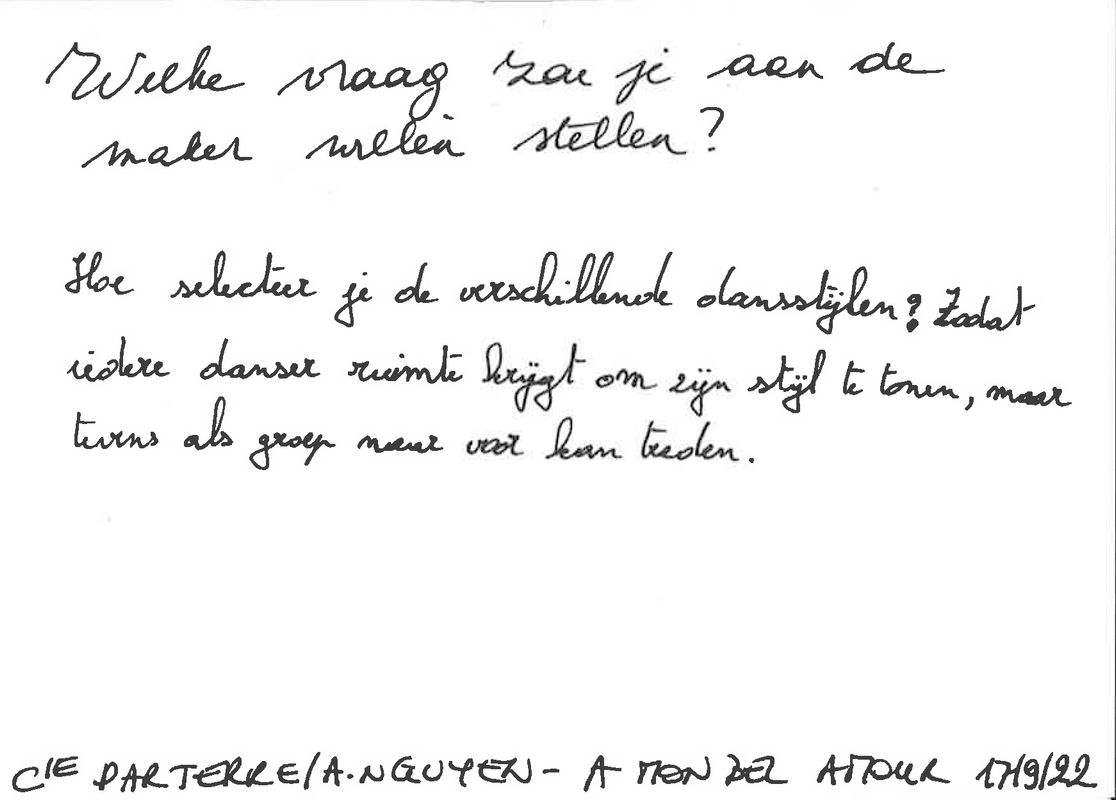 Welke vraag zou je aan de
maker willen stellen?
Hoe selecteer je de verschillende dansstijlen? Zodat
iedere danser ruimte krijgt om zijn stijl te tonen, maar
tevens als groep naar voor kan treden.
CIE PARTERRE/A.NGUYEN - A MON BEL AMOUR 17/9/22